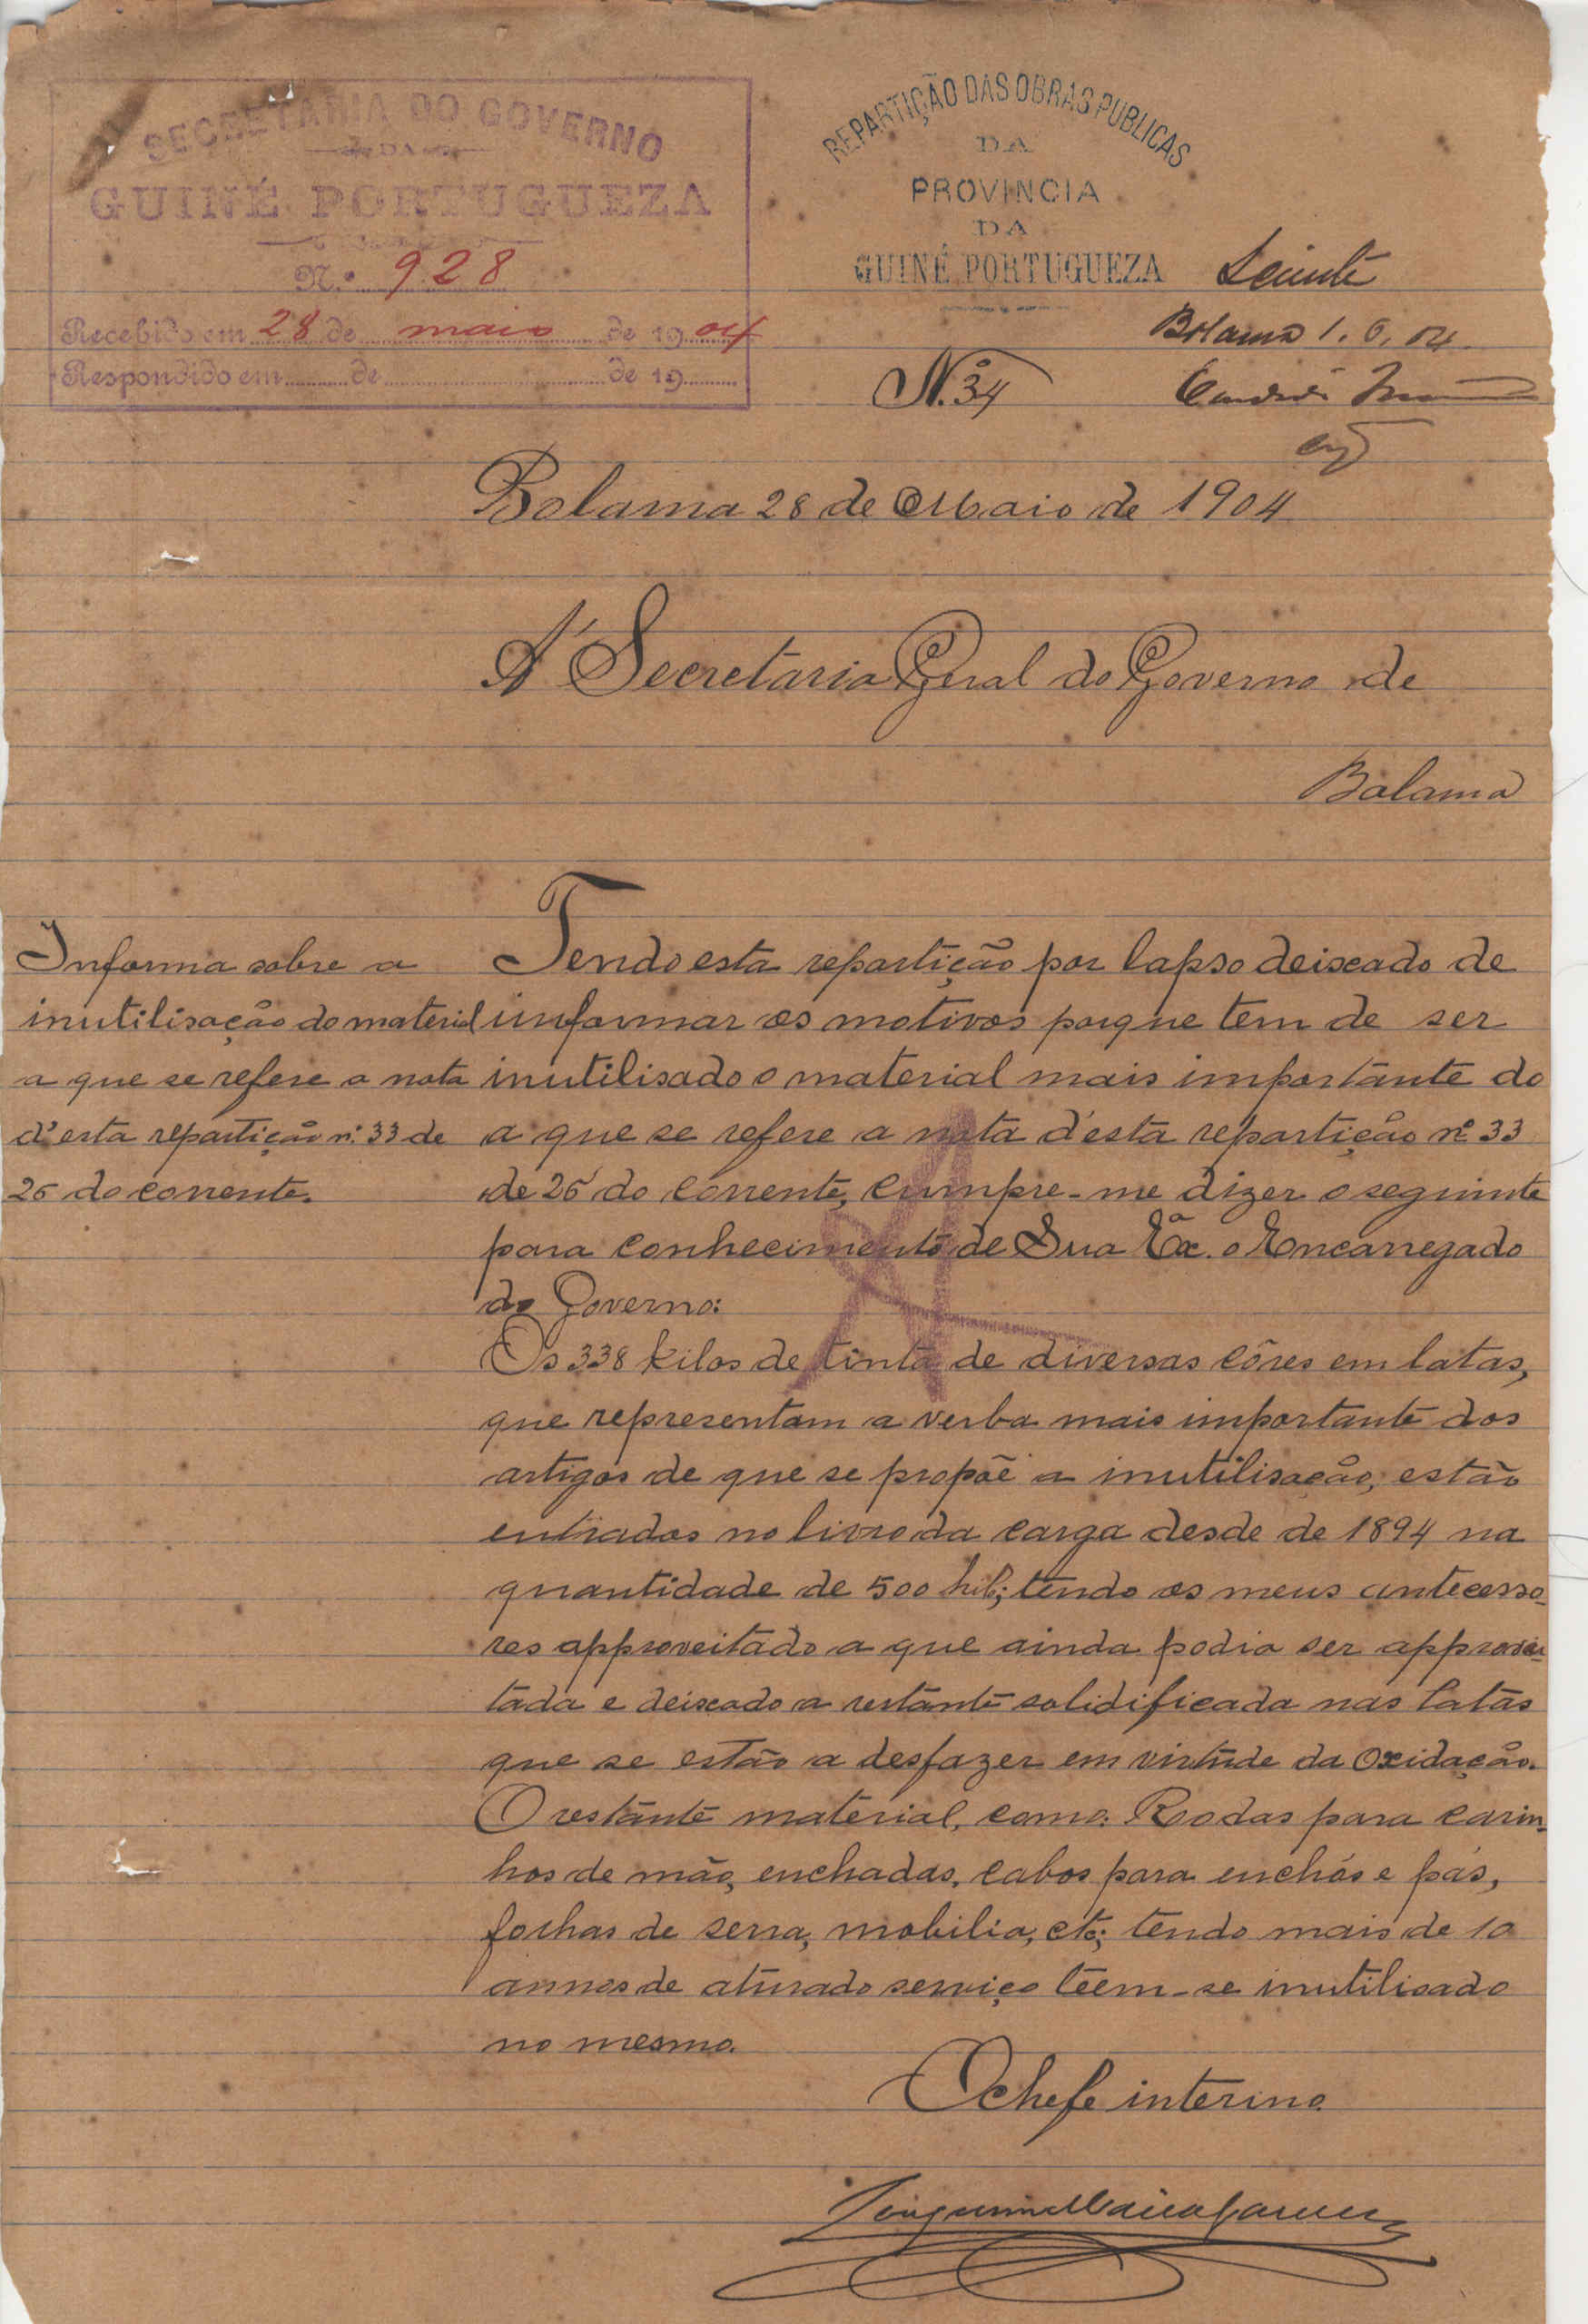 SECRETARIA DO GOVERNO
DA
GUINÉ PORTUGUEZA
N.º 928
Recebido em 28 de maio de 1904
Respondido em de de 19
REPARTIÇÃO DAS OBRAS PUBLICAS
DA
PROVINCIA
DA
GUINÉ PORTUGUEZA
Sciente
Bolama 1.6.04
N.º 34
Bolama 28 de Maio de 1904
A' Secretaria Geral do Governo de
Bolama
Informa sobre a
inutilisação do material
a que se refere a nota
d'esta repartição n.º 33 de
26 do corrente.
Tendo esta repartição por lapso deixado de
informar os motivos porque tem de ser
inutilisado o material mais importante do
a que se refere a nota d'esta repartição nº 33
de 26 do corrente, cumpre-me dizer o seguinte
para conhecimento de Sua Exª. o Encarregado
do Governo:
Os 338 kilos de tinta de diversas côres em latas,
que representam a verba mais importante dos
artigos de que se propõe a inutilisação, estão
entrados no livro da carga desde de 1894 na
quantidade de 500 kil; tendo os meus antecesso-
res approveitado a que ainda podia ser approvei-
tada e deixado a restante solidificada nas latas
que se estão a desfazer em virtude da Oxidação.
O restante material, como: Rodas para carin-
hos de mão, enchadas, cabos para enchós e pás,
folhas de serra, mobilia, etc; tendo mais de 10
annos de aturado serviço têem-se inutilisado
no mesmo.
O chefe interino